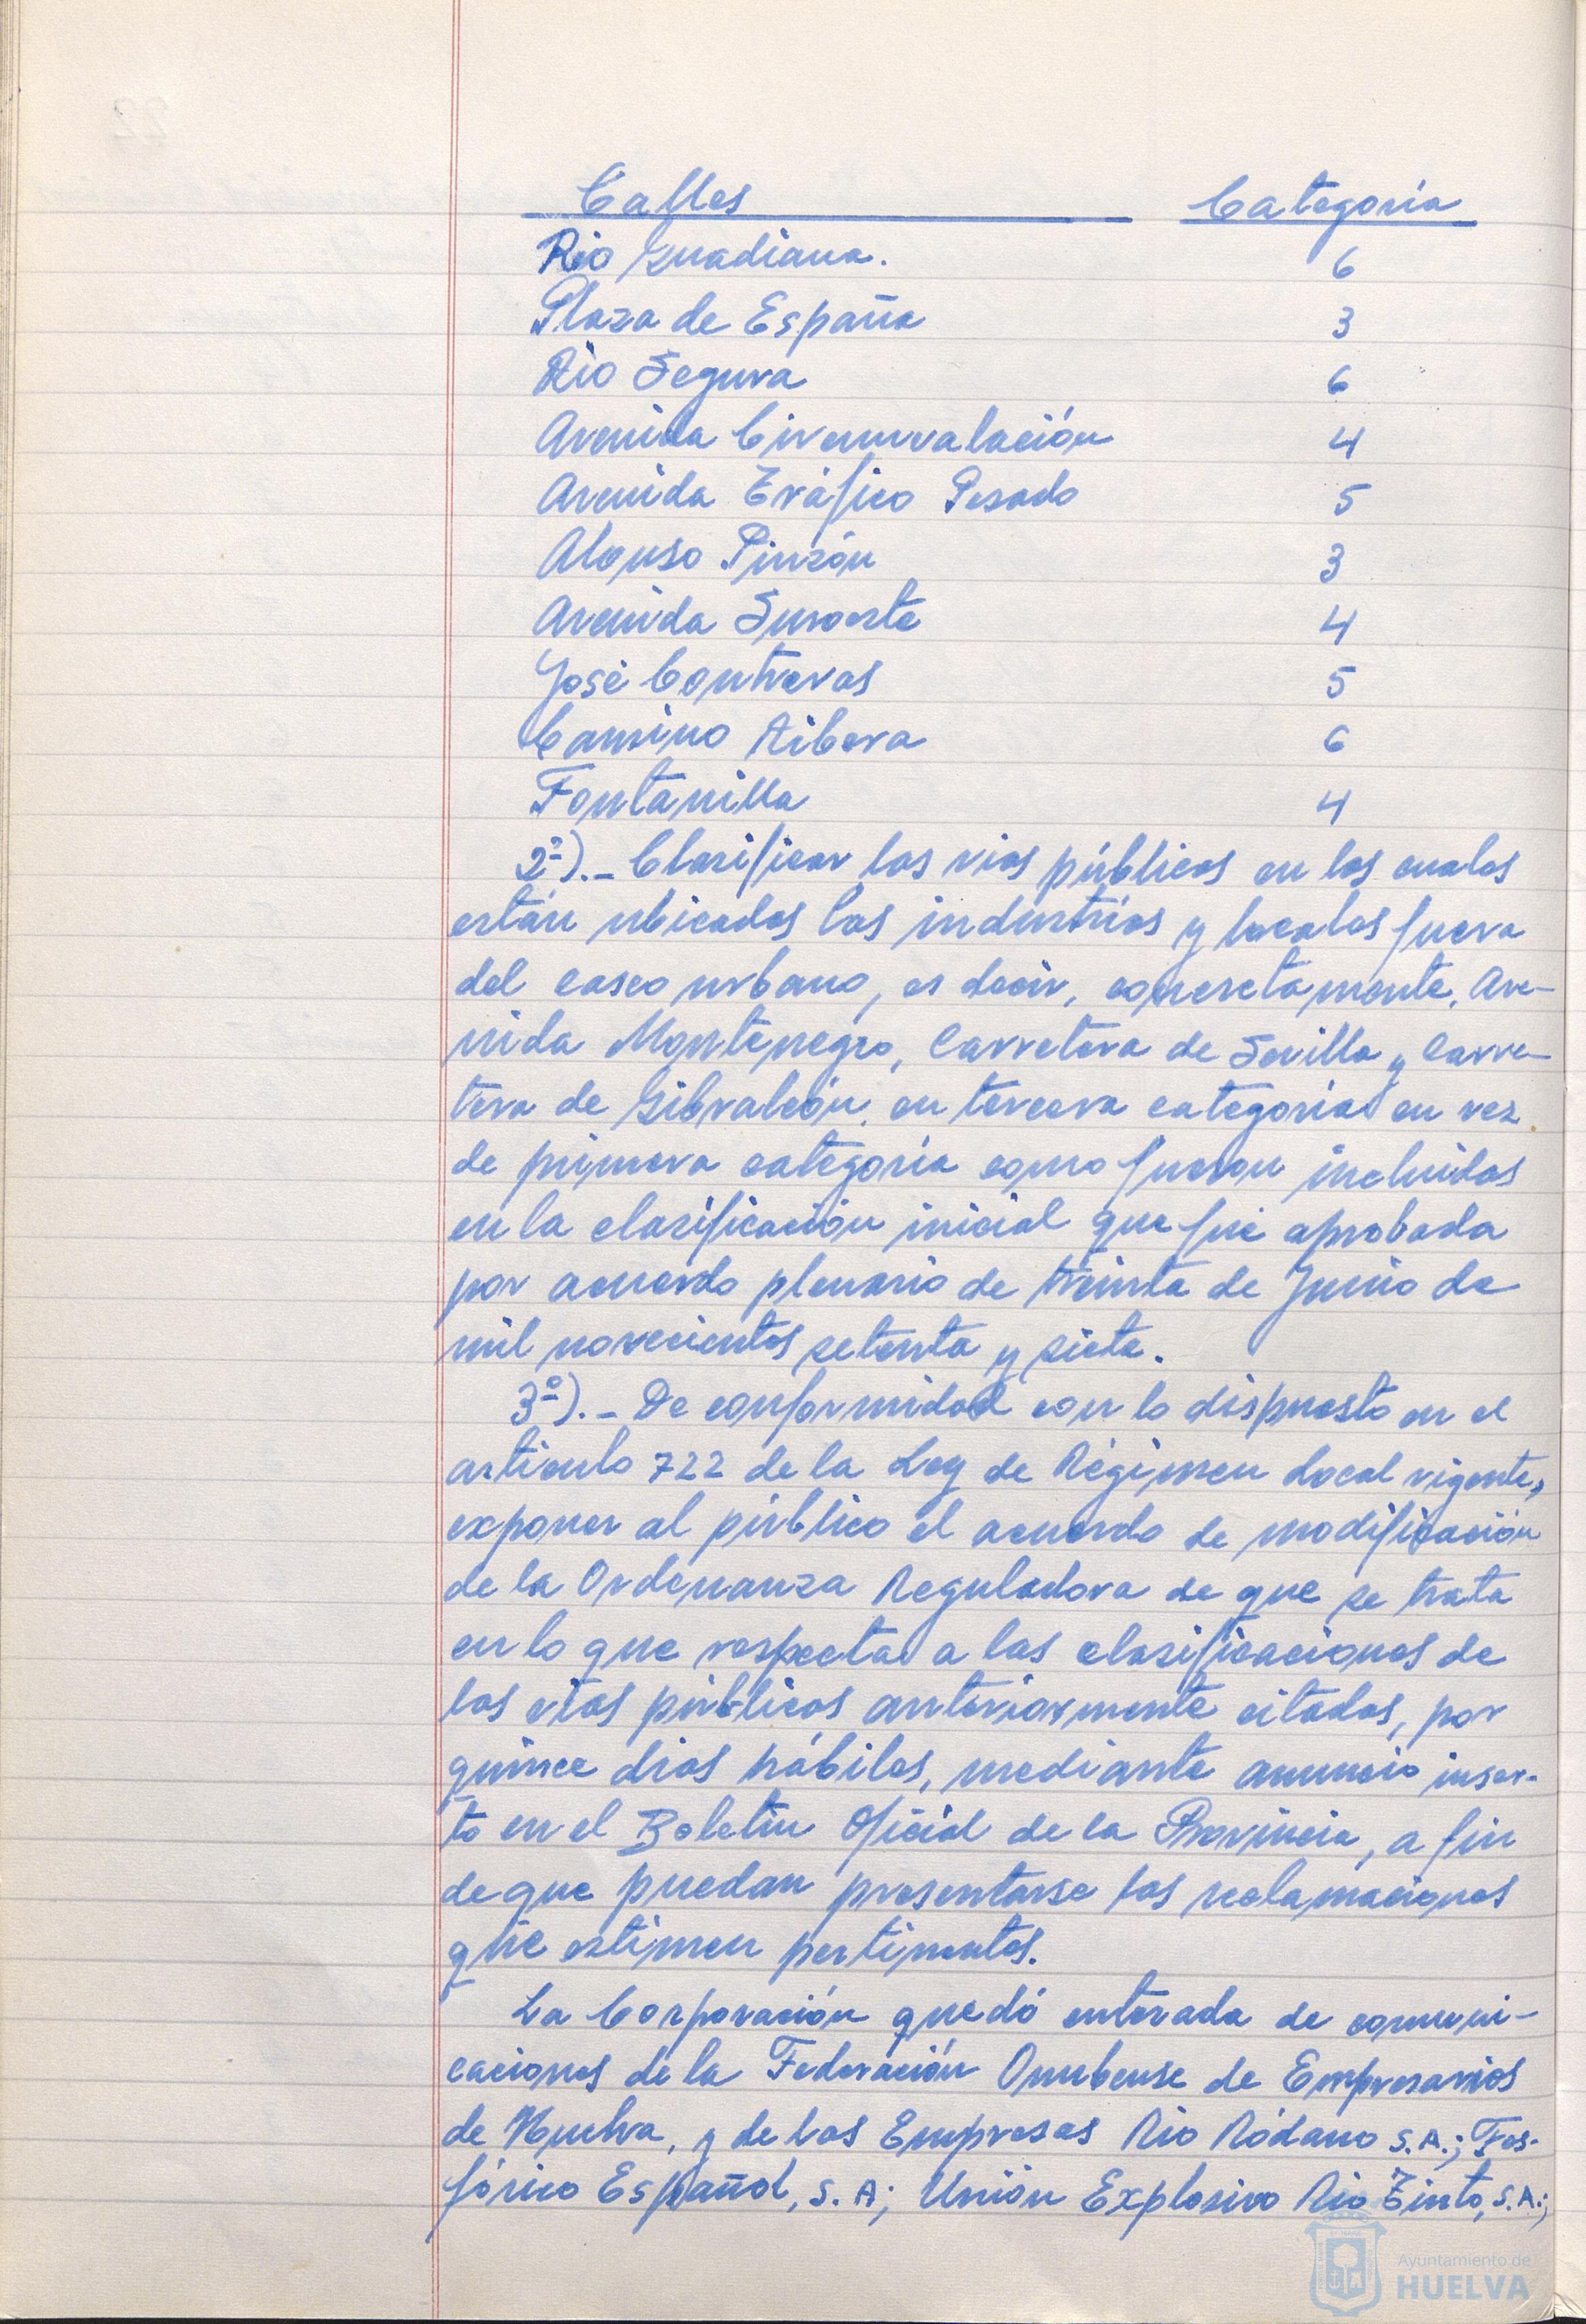 Calles Categoría
Rio Guadiana. 6
Plaza de España 3
Rio Segura 6
Avenida Circunvalación 4
Avenida Tráfico Pesado 5
Alonso Pinzón 3
Avenida Suroeste 4
José Contreras 5
Camino Ribera 6
Fontanilla 4
2º).- Clasificar las vias públicas en las cuales
están ubicadas las industrias y locales fuera
del casco urbano, es decir, concretamente, Ave-
nida Montenegro, Carretera de Sevilla y Carre-
tera de Gibraleón, en tercera categoría en vez
de primera categoría como fueron incluidas
en la clasificación inicial que fué aprobada
por acuerdo plenario de treinta de Junio de
mil novecientos setenta y siete.
3º).- De conformidad con lo dispuesto en el
articulo 722 de la Ley de Régimen Local vigente,
exponer al público el acuerdo de modificación
de la Ordenanza Reguladora de que se trata
en lo que respecta a las clasificaciones de
las vias públicas anteriormente citadas, por
quince dias hábiles, mediante anuncio inser-
to en el Boletin Oficial de la Provincia, a fin
de que puedan presentarse las reclamaciones
que estimen pertinentes.
La Corporación quedó enterada de comuni-
caciones de la Federación Onubense de Empresarios
de Huelva, y de las Empresas Rio Ródano S.A.; Fos-
fórico Español, S.A; Unión Explosivo Rio Tinto, S.A.;
Ayuntamiento de
HUELVA